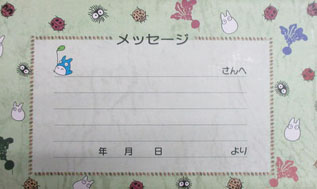 メッセージ
さんへ
年 月 日 より